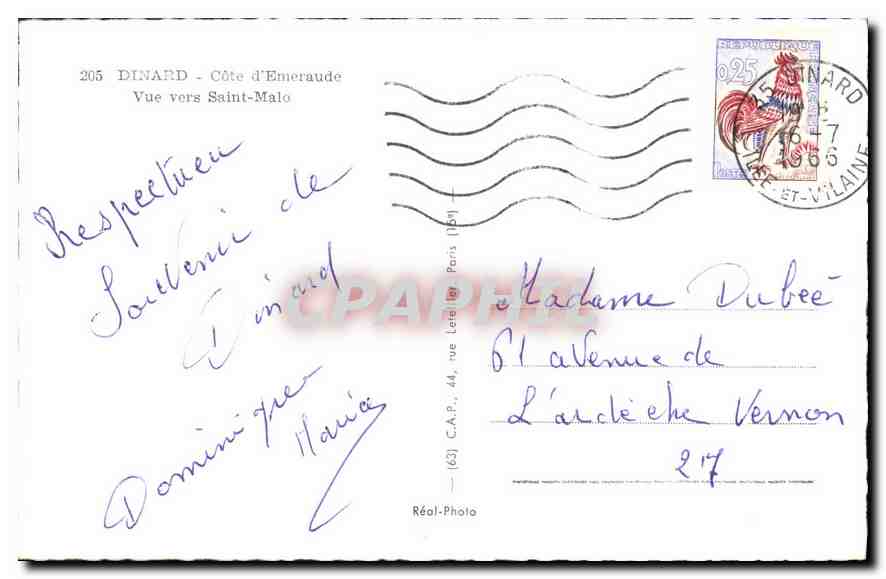 205 DINARD - Côte d'Emeraude
Vue vers Saint-Malo
REPUBLIQUE
0,25
35 DINARD
6-7
1966
ILLE-ET-VILAINE
Respectueu
Souvenir de
Dinard
Dominique
Maria
CPAPHIL
(63) C.A.P., 44, rue Letellier, Paris (15e)
Réal-Photo
Madame Dubeé
61 avenue de
L'ardèche Vernon
27